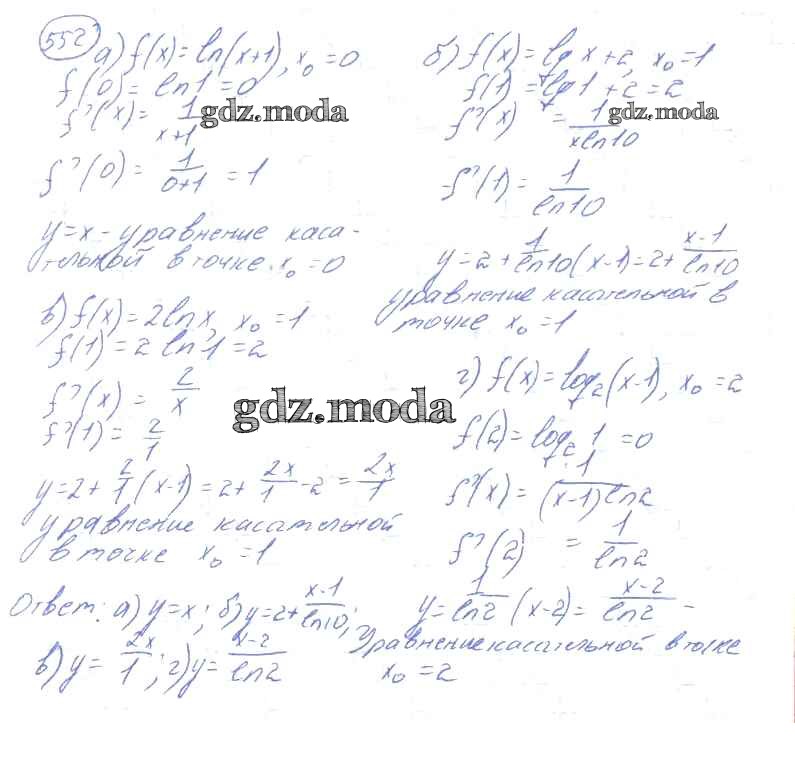 552
а) f(x) = ln(x+1), x₀ = 0
f(0) = ln1 = 0
f'(x) = 1/(x+1)
gdz.moda
f'(0) = 1/(0+1) = 1
y = x - уравнение каса-
тельной в точке x₀ = 0
б) f(x) = lg x + 2, x₀ = 1
f(1) = lg1 + 2 = 2
f'(x) = 1/(x ln10)
gdz.moda
f'(1) = 1/ln10
y = 2 + 1/ln10 (x-1) = 2 + (x-1)/ln10
уравнение касательной в
точке x₀ = 1
в) f(x) = 2lnx, x₀ = 1
f(1) = 2 ln1 = 2
f'(x) = 2/x
gdz.moda
f'(1) = 2/1
y = 2 + 2/1 (x-1) = 2 + 2x/1 - 2 = 2x/1
уравнение касательной
в точке x₀ = 1
г) f(x) = log₂(x-1), x₀ = 2
f(2) = log₂ 1 = 0
f'(x) = 1/((x-1) ln2)
f'(2) = 1/ln2
y = 1/ln2 (x-2) = (x-2)/ln2 -
уравнение касательной в точке
x₀ = 2
Ответ: а) y = x; б) y = 2 + (x-1)/ln10;
в) y = 2x/1; г) y = (x-2)/ln2